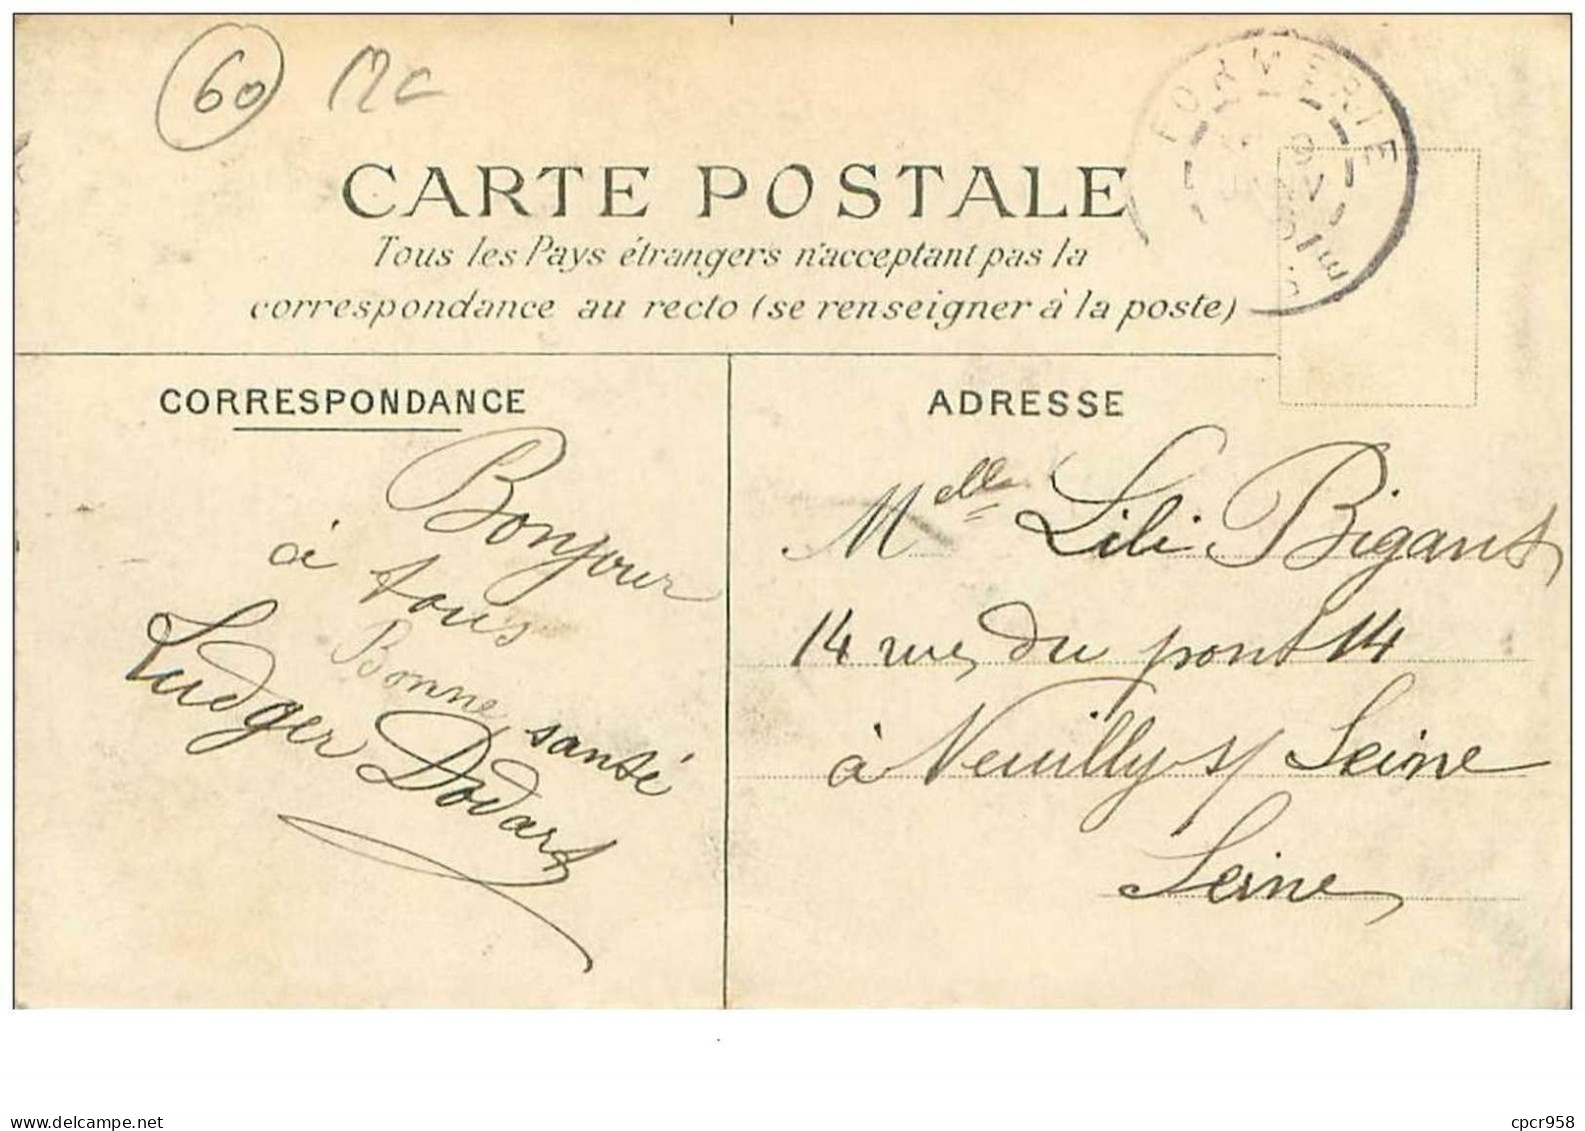 60
FORMERIE
OISE
CARTE POSTALE
Tous les Pays étrangers n'acceptant pas la
correspondance au recto (se renseigner à la poste)
CORRESPONDANCE
Bonjour
à tous
Bonne santé
Ludger Dodart
ADRESSE
Melle Lili Bigant
14 rue du pont 14
à Neuilly s/ Seine
Seine
www.delcampe.net
cpcr958